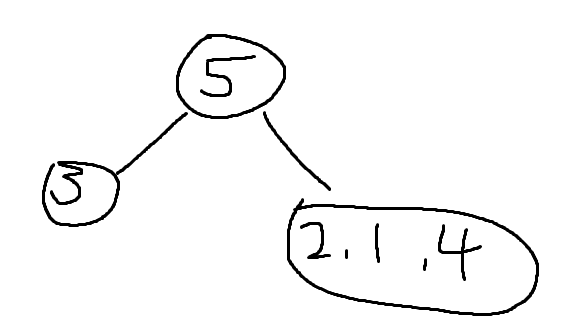 5
3
2.1.4